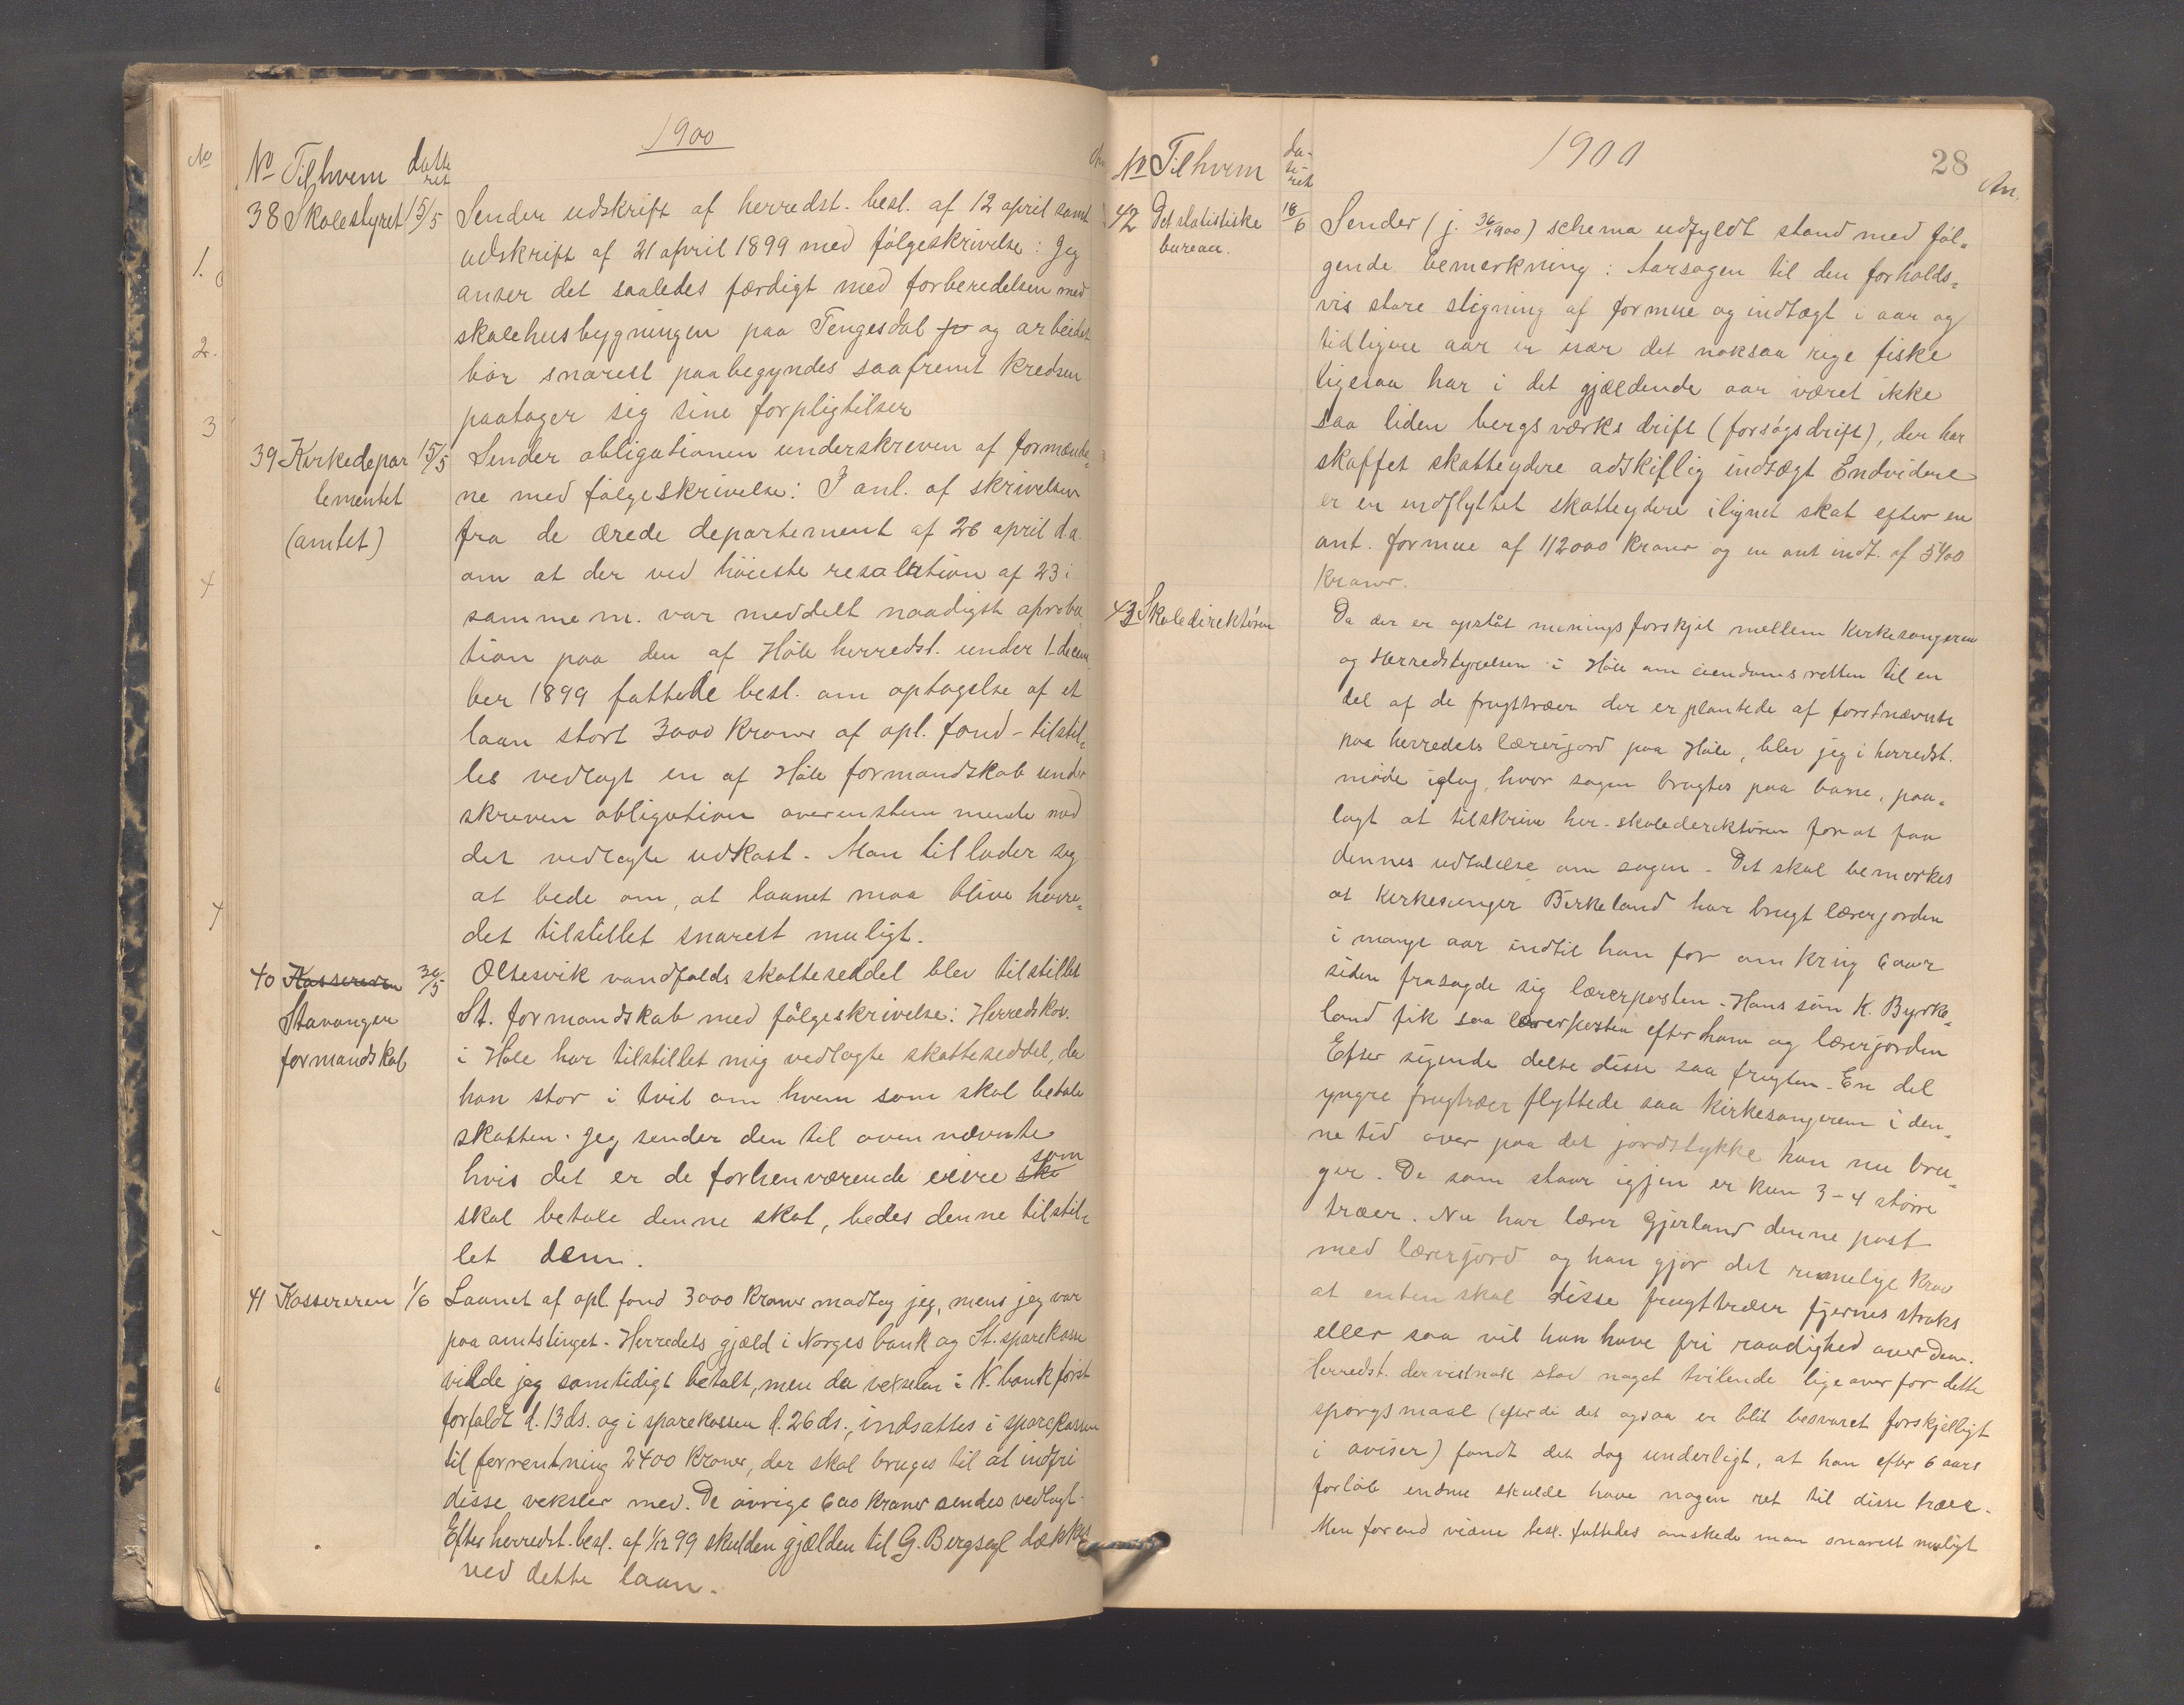 1900
No Tilhvem datteret
38 Skolestyret 15/5 Sender udskrift af herredst. besl. af 12 april samt
udskrift af 21 april 1899 med følgeskrivelse: Jeg
anser det saaledes færdigt med forberedelsen med
skolehusbygningen paa Tengesdal og arbeidet
bør snarest paabegyndes saafremt kredsen
paatager sig sine forpligtilser
39 Kirkedepar 15/5 Sender obligationen underskreven af formænde-
tementet ne med følgeskrivelse: I anl. af skrivelsen
(amtet) fra de ærede departement af 26 april d.a.
om at der ved höieste resolution af 23 i
samme m. var meddelt naadigst aproba-
tion paa den af Höle herredst. under 1 decem
ber 1899 fattede besl. om optagelse af et
laan stort 3000 kroner af opl. fond - tilstil-
les vedlagt en af Höle formandskab under
skreven obligation overenstemmende med
det vedlagte udkast. Man tillader sig
at bede om, at laanet maa blive herre-
det tilstillet snarest muligt.
40 Kassereren 30/5 Oltesvik vandfalds skatteseddel blev tilstillet
Stavanger St. formandskab med følgeskrivelse: Herredskas.
formandskab i Höle har tilstillet mig vedlagte skatteseddel, da
han stor i tvil om hvem som skal betale
skatten. Jeg sender den til ovennævnte
hvis det er de forhenværende eiere ska som
skal betale denne skat, bedes denne tilstil-
let dem.
41 Kassereren 1/6 Laanet af opl. fond 3000 kroner modtog jeg, mens jeg var
paa amtstinget. Herredets gjæld i Norges bank og St. sparekasse
vilde jeg samtidigt betalt, men da vekselen i N. bank først
forfaldt d. 13 ds. og i sparekassen d. 26 ds., indsattes i sparekassen
til forrentning 2400 kroner, der skal bruges til at indfri
disse veksler med. De øvrige 600 kroner sendes vedlagt.
Efter herredst. besl. af 1/12 99 skulde gjælden til G. Bergsagl dækkes
ved dette laan.
1900
28
No Tilhvem dateret An.
42 Det statistiske 18/6 Sender (j. 36/1900) schema udfyldt stand med føl-
bureau. gende bemerkning: Aarsagen til den forholds-
vis store stigning af formue og indtægt i aar og
tidligere aar er især det noksaa rige fiske
ligesaa har i det gjældende aar været ikke
saa liden bergsværksdrift (forsøgsdrift), der har
skaffet skatteydere adskillig indtægt Endvidere
er en indflyttet skatteydere ilignet skat efter en
ant. formue af 112000 kroner og en ant indt. af 5400
kroner.
43 Skoledirektören Da der er opståt meningsforskjel mellem kirkesangeren
og Herredstyrelsen i Höle om eiendomsretten til en
del af de frugttræer der er plantede af forstnævnte
paa herredets lærerjord paa Höle, blev jeg i herredst.
møde idag, hvor sagen bragtes paa bane, paa-
lagt at tilskrive hr. skoledirektören for at faa
dennes udtalelse om sagen. Det skal bemerkes
at kirkesanger Birkeland har brugt lærerjorden
i mange aar indtil han for omkring 6 aar
siden frasagde sig lærerposten. Hans sön K. Byrke-
land fik saa lærerposten efter ham og lærerjorden
Efter sigende delte disse saa frugten. En del
yngre frugtræer flyttede saa kirkesangeren i den-
ne tid over paa det jordstykke han nu bru-
ger. De som staar igjen er kun 3-4 større
træer. Nu har lærer Gjerland denne post
med lærerjord og han gjør det rimelige krav
at enten skal disse frugttræer fjernes straks
eller saa vil han have fri raadighed over dem.
Herredst. der vistnok stod noget tvilende ligeover for dette
spørgsmaal (efterdi det ogsaa er blit besvaret forskjelligt
i aviser) fandt det dog underligt, at han efter 6 aars
forløb endnu skulde have nogen ret til disse træer.
Men forend videre besl. fattedes ønskede man snarest muligt